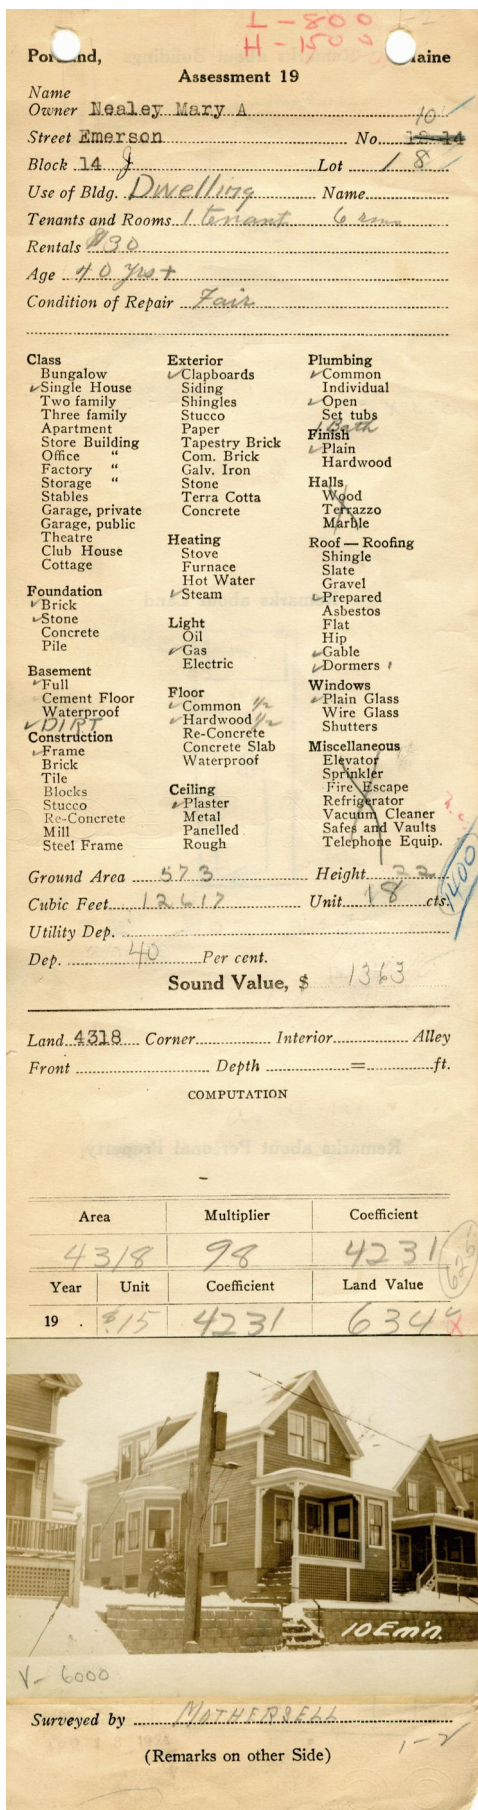 L-800
H-1500
Portland, Maine
Assessment 19
Name
Owner Nealey Mary A
10
Street Emerson No. 12-14
Block 14 J Lot 18
Use of Bldg. Dwelling Name
Tenants and Rooms 1 tenant 6 rms
Rentals $30
Age 40 yrs+
Condition of Repair Fair
Class
Bungalow
✓Single House
Two family
Three family
Apartment
Store Building
Office "
Factory "
Storage "
Stables
Garage, private
Garage, public
Theatre
Club House
Cottage
Foundation
✓Brick
✓Stone
Concrete
Pile
Basement
✓Full
Cement Floor
Waterproof
✓DIRT
Construction
✓Frame
Brick
Tile
Blocks
Stucco
Re-Concrete
Mill
Steel Frame
Exterior
✓Clapboards
Siding
Shingles
Stucco
Paper
Tapestry Brick
Com. Brick
Galv. Iron
Stone
Terra Cotta
Concrete
Heating
Stove
Furnace
Hot Water
✓Steam
Light
Oil
✓Gas
Electric
Floor
✓Common 1/2
✓Hardwood 1/2
Re-Concrete
Concrete Slab
Waterproof
Ceiling
✓Plaster
Metal
Panelled
Rough
Plumbing
✓Common
Individual
✓Open
Set tubs
1 Bath
Finish
✓Plain
Hardwood
Halls
Wood
Terrazzo
Marble
Roof — Roofing
Shingle
Slate
Gravel
✓Prepared
Asbestos
Flat
Hip
✓Gable
✓Dormers 1
Windows
✓Plain Glass
Wire Glass
Shutters
Miscellaneous
Elevator
Sprinkler
Fire Escape
Refrigerator
Vacuum Cleaner
Safes and Vaults
Telephone Equip.
1400
Ground Area 573 Height 22
Cubic Feet 12617 Unit 18 cts.
Utility Dep.
Dep. 40 Per cent.
Sound Value, $ 1363
Land 4318 Corner Interior Alley
Front Depth = ft.
COMPUTATION
Area Multiplier Coefficient
4318 98 4231
625
Year Unit Coefficient Land Value
19 . $.15 4231 634
10 Em'n.
V- 6000
Surveyed by MOTHERSELL
(Remarks on other Side)
1-2